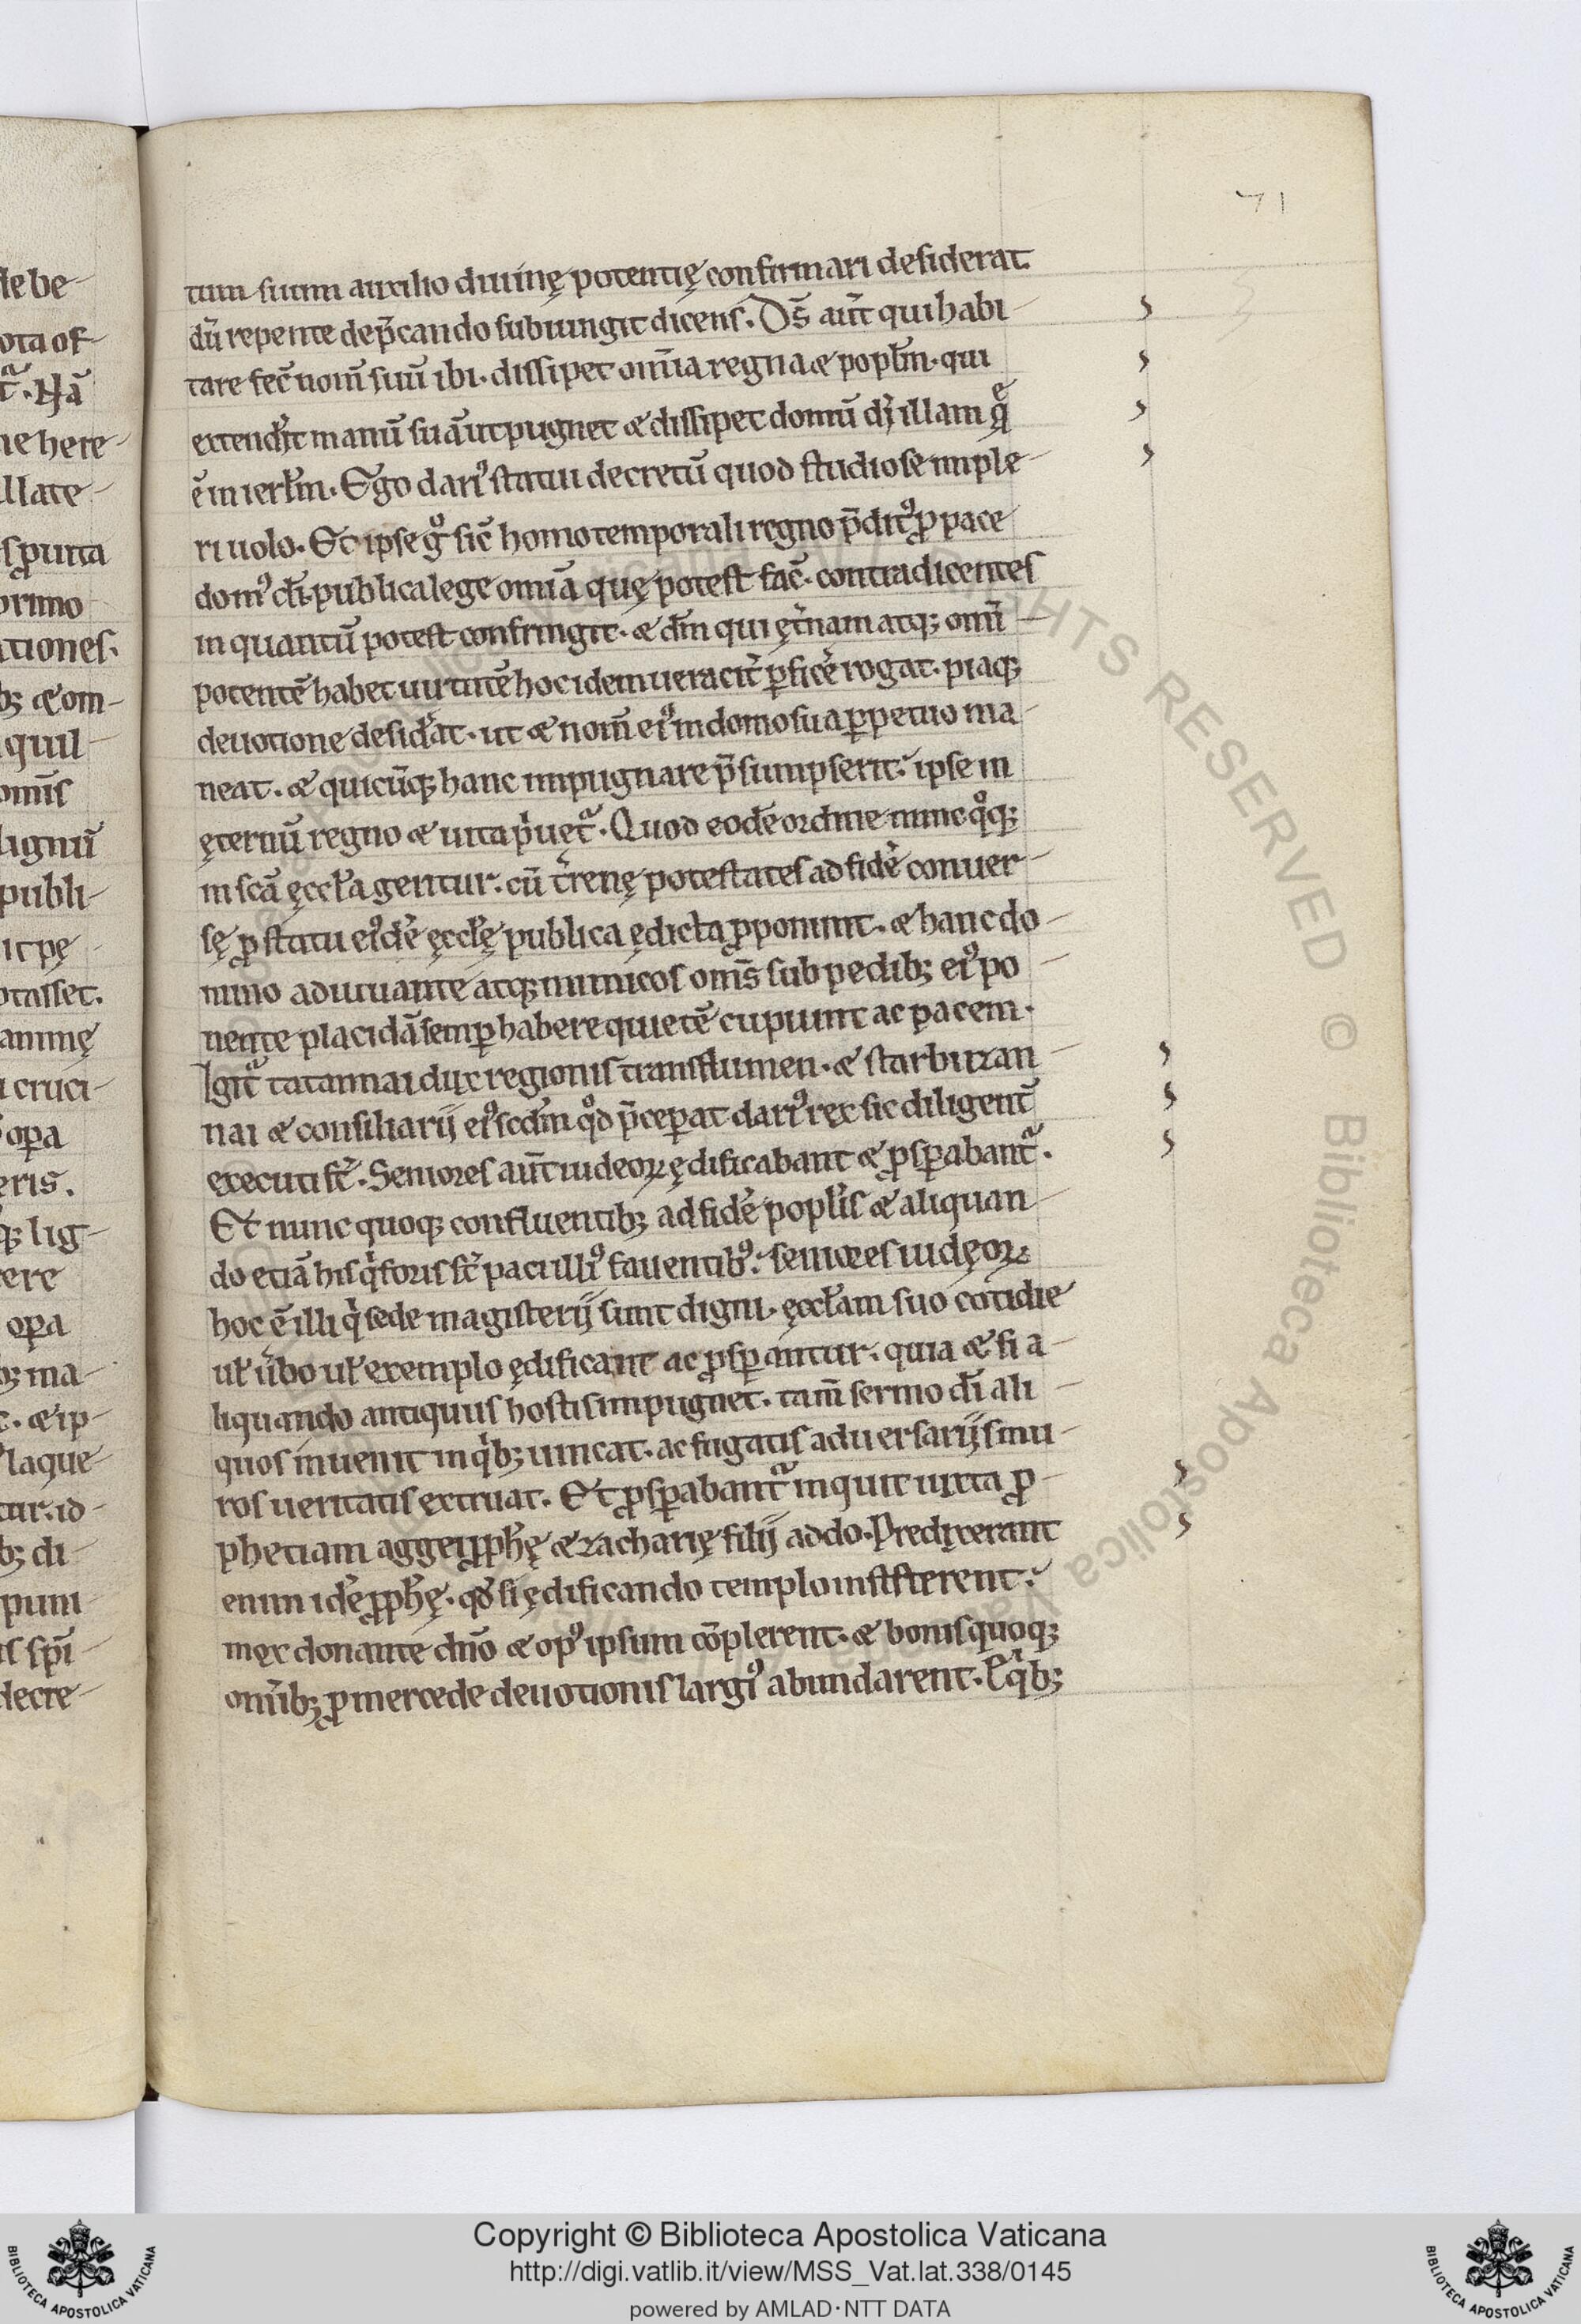 71
tum suum auxilio diuinę potentię confirmari desiderat
dū repente dep̄cando subiungit dicens. D̄s aut̄ qui habi
tare fec̄ nom̄ suū ibi. dissipet om̄ia regna & popl̄m. qui
extend̄it manū suā ut pugnet & dissipet domū dī illam q̄
ē in ierl̄m. Ego dari᾽ statui decretū quod studiose imple
ri uolo. Et ipse g° sic̄ homo temporali regno p̄dit᾽ ꝓ pace
dom᾽ dī. publica lege om̄ia quę potest fac̄. contradicentes
in quantū potest confringit. & dm̄ qui ęt̄nam atq; omī
potentē habet uirtutē hoc idem ueracit̄ ꝑfic̄e rogat. piaq;
deuotione desid̄at. ut & nom̄ ei᾽ in domo sua ꝑpetuo ma
neat. & quicūq; hanc impugnare p̄sumpserit. ipse in
ęternū regno & uita p̍uetᷓ. Quod eodē ordine nunc q°q;
in sc̄a ęccl̄a geritur. cū t̄renę potestates ad fidē conuer
sę ꝓ statu ei᾽dē ęccl̄ę publica ędicta ꝓponunt. & hanc do
mino adiuuante atq; inimicos om̄s sub pedib; ei᾽ po
nente placidā semꝑ habere quietē cupiunt ac pacem.
Igitᷓ tatannai dux regionis transflumen. & starbuzan
nai & consiliarij ei᾽ scd̄m q°d p̄ceꝑat dari᾽ rex sic diligent̄
executi st̄. Seniores aut̄ iudeoꝝ ędificabant & ꝓsꝑabantᷓ.
Et nunc quoq; confluentib; ad fidē popl̄is & aliquan
do etiā his q̍ foris st̄ paci illi᾽ fauentib᾽. seniores iudęoꝝ
hoc ē illi q̍ sede magisterij sunt digni. ęccl̄am suo cotidie
ul̄ ūbo ul̄ exemplo ędificant ac ꝓsꝑantur. quia & si a
liquando antiquus hostis impugnet. tam̄ sermo dī ali
quos inuenit in q̍b; uincat. ac fugatis aduersarijs mu
ros ueritatis extruat. Et ꝓsꝑabantᷓ inquit iuxta ꝓ
phetiam aggei ꝓph̄ę & zacharię filij addo. Predixerant
enim idē ꝓph̄ę. qd̄ si ędificando templo insisterent.
mox donante dn̄o & op᾽ ipsum cōplerent. & bonis quoq;
om̄ib; ꝓ mercede deuotionis largi᾽ abundarent. E q̍b;
Copyright © Biblioteca Apostolica Vaticana
http://digi.vatlib.it/view/MSS_Vat.lat.338/0145
powered by AMLAD·NTT DATA